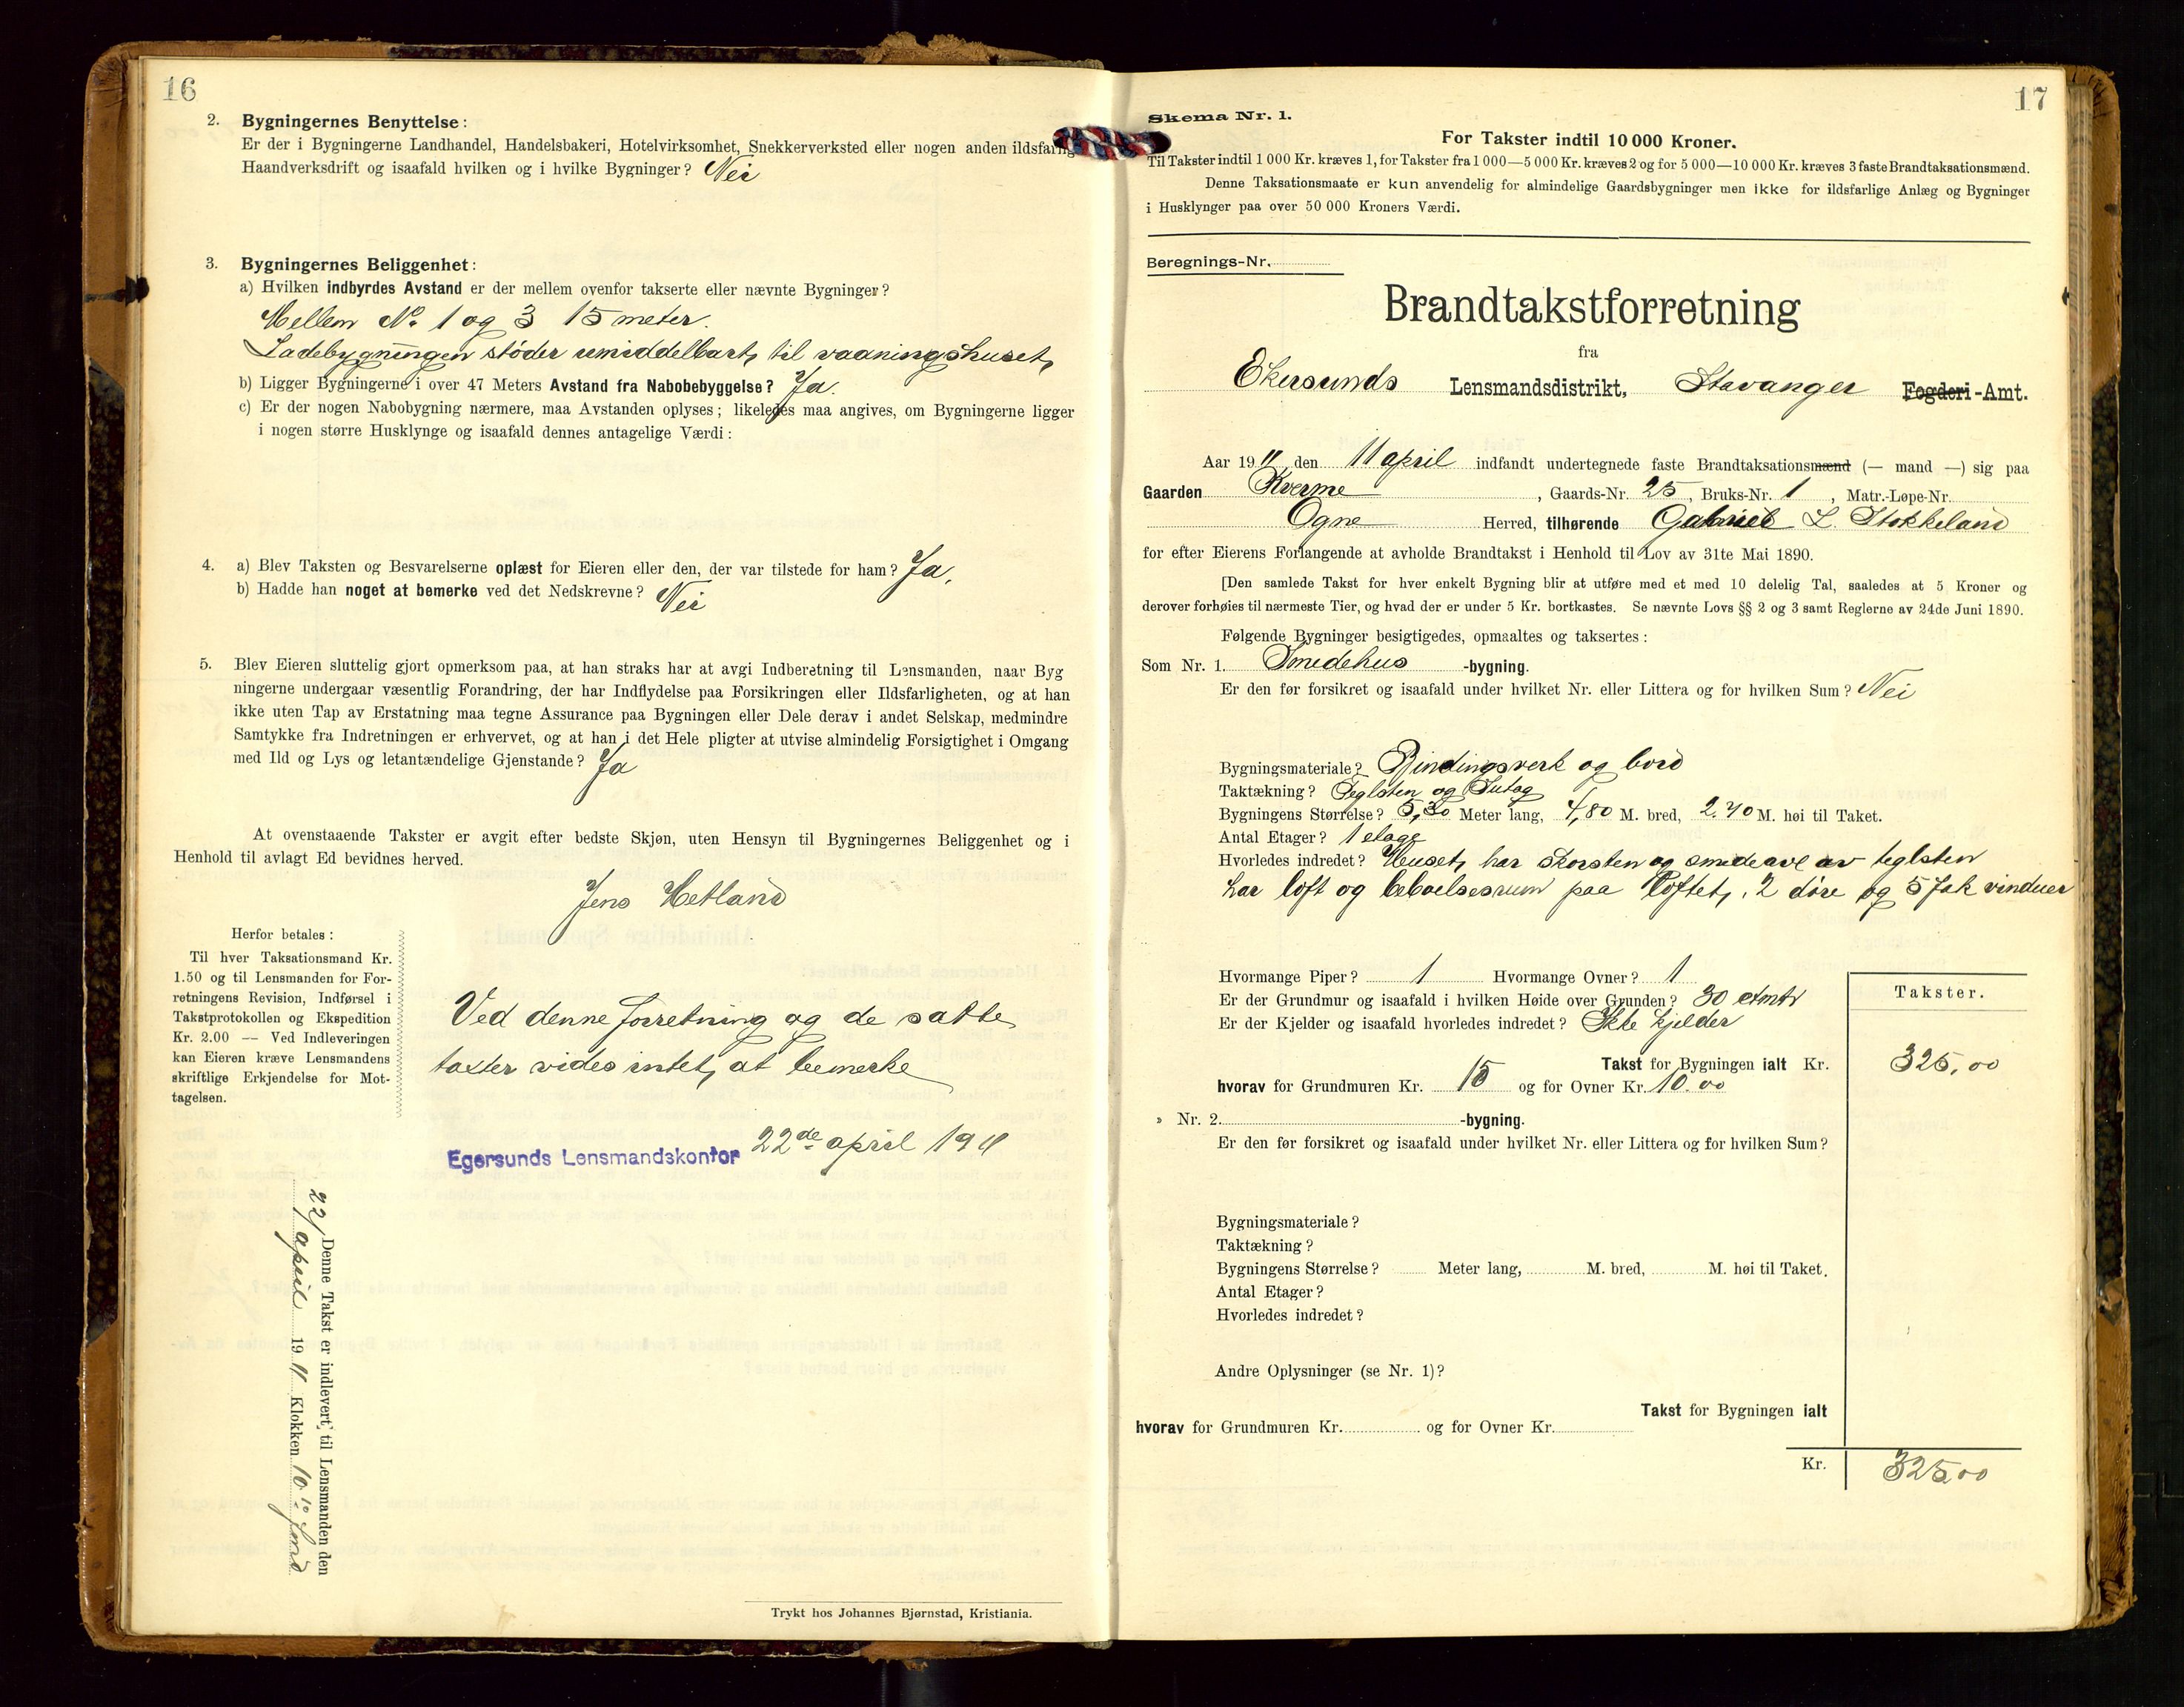 16
2. Bygningernes Benyttelse:
Er der i Bygningerne Landhandel, Handelsbakeri, Hotelvirksomhet, Snekkerverksted eller nogen anden ildsfarlig
Haandverksdrift og isaafald hvilken og i hvilke Bygninger? Nei
3. Bygningernes Beliggenhet:
a) Hvilken indbyrdes Avstand er der mellem ovenfor takserte eller nævnte Bygninger?
Mellem No 1 og 3 15 meter.
Ladebygningen støder umiddelbart til vaaningshuset,
b) Ligger Bygningerne i over 47 Meters Avstand fra Nabobebyggelse? Ja.
c) Er der nogen Nabobygning nærmere, maa Avstanden oplyses; likeledes maa angives, om Bygningerne ligger
i nogen større Husklynge og isaafald dennes antagelige Værdi:
4. a) Blev Taksten og Besvarelserne oplæst for Eieren eller den, der var tilstede for ham? Ja.
b) Hadde han noget at bemerke ved det Nedskrevne? Nei
5. Blev Eieren sluttelig gjort opmerksom paa, at han straks har at avgi Indberetning til Lensmanden, naar Byg
ningerne undergaar væsentlig Forandring, der har Indflydelse paa Forsikringen eller Ildsfarligheten, og at han
ikke uten Tap av Erstatning maa tegne Assurance paa Bygningen eller Dele derav i andet Selskap, medmindre
Samtykke fra Indretningen er erhvervet, og at han i det Hele pligter at utvise almindelig Forsigtighet i Omgang
med Ild og Lys og letantændelige Gjenstande? Ja
At ovenstaaende Takster er avgit efter bedste Skjøn, uten Hensyn til Bygningernes Beliggenhet og i
Henhold til avlagt Ed bevidnes herved.
Jens Hetland
Herfor betales:
Til hver Taksationsmand Kr.
1.50 og til Lensmanden for For-
retningens Revision, Indførsel i
Takstprotokollen og Ekspedition
Kr. 2.00 — Ved Indleveringen
kan Eieren kræve Lensmandens
skriftlige Erkjendelse for Mot-
tagelsen.
Ved denne forretning og de satte
taxter vides intet at bemerke
Egersunds Lensmandskontor 22de april 1911
Denne Takst er indlevert til Lensmanden den
22/ april 1911 Klokken 10.10 fmd.
Trykt hos Johannes Bjørnstad, Kristiania.
17
Skema Nr. 1.
For Takster indtil 10 000 Kroner.
Til Takster indtil 1 000 Kr. kræves 1, for Takster fra 1 000—5 000 Kr. kræves 2 og for 5 000—10 000 Kr. kræves 3 faste Brandtaksationsmænd.
Denne Taksationsmaate er kun anvendelig for almindelige Gaardsbygninger men ikke for ildsfarlige Anlæg og Bygninger
i Husklynger paa over 50 000 Kroners Værdi.
Beregnings-Nr.
Brandtakstforretning
fra
Ekersunds Lensmandsdistrikt, Stavanger Fogderi-Amt.
Aar 1911 den 11 april indfandt undertegnede faste Brandtaksationsmænd (— mand —) sig paa
Gaarden Kverme, Gaards-Nr. 25, Bruks-Nr. 1, Matr.-Løpe-Nr.
Ogne Herred, tilhørende Gabriel L. Stokkeland
for efter Eierens Forlangende at avholde Brandtakst i Henhold til Lov av 31te Mai 1890.
[Den samlede Takst for hver enkelt Bygning blir at utføre med et med 10 delelig Tal, saaledes at 5 Kroner og
derover forhøies til nærmeste Tier, og hvad der er under 5 Kr. bortkastes. Se nævnte Lovs §§ 2 og 3 samt Reglerne av 24de Juni 1890.
Følgende Bygninger besigtigedes, opmaaltes og taksertes:
Som Nr. 1. Smedehus -bygning.
Er den før forsikret og isaafald under hvilket Nr. eller Littera og for hvilken Sum? Nei
Bygningsmateriale? Bindingsverk og bord
Taktækning? Teglsten og Sutag
Bygningens Størrelse? 5,30 Meter lang, 4,80 M. bred, 2.40 M. høi til Taket.
Antal Etager? 1 etage
Hvorledes indredet? Huset har skorsten og smedeavl av teglsten
har loft og beboelsesrum paa loftet, 2 døre og 5 fak vinduer
Hvormange Piper? 1 Hvormange Ovner? 1
Er der Grundmur og isaafald i hvilken Høide over Grunden? 30 ctmtr
Er der Kjelder og isaafald hvorledes indredet? Ikke kjelder
Takster.
Takst for Bygningen ialt Kr. 325,00
hvorav for Grundmuren Kr. 15 og for Ovner Kr. 10.00
» Nr. 2. -bygning.
Er den før forsikret og isaafald under hvilket Nr. eller Littera og for hvilken Sum?
Bygningsmateriale?
Taktækning?
Bygningens Størrelse? Meter lang, M. bred, M. høi til Taket.
Antal Etager?
Hvorledes indredet?
Andre Oplysninger (se Nr. 1)?
Takst for Bygningen ialt
hvorav for Grundmuren Kr. og for Ovner Kr.
Kr. 325,00